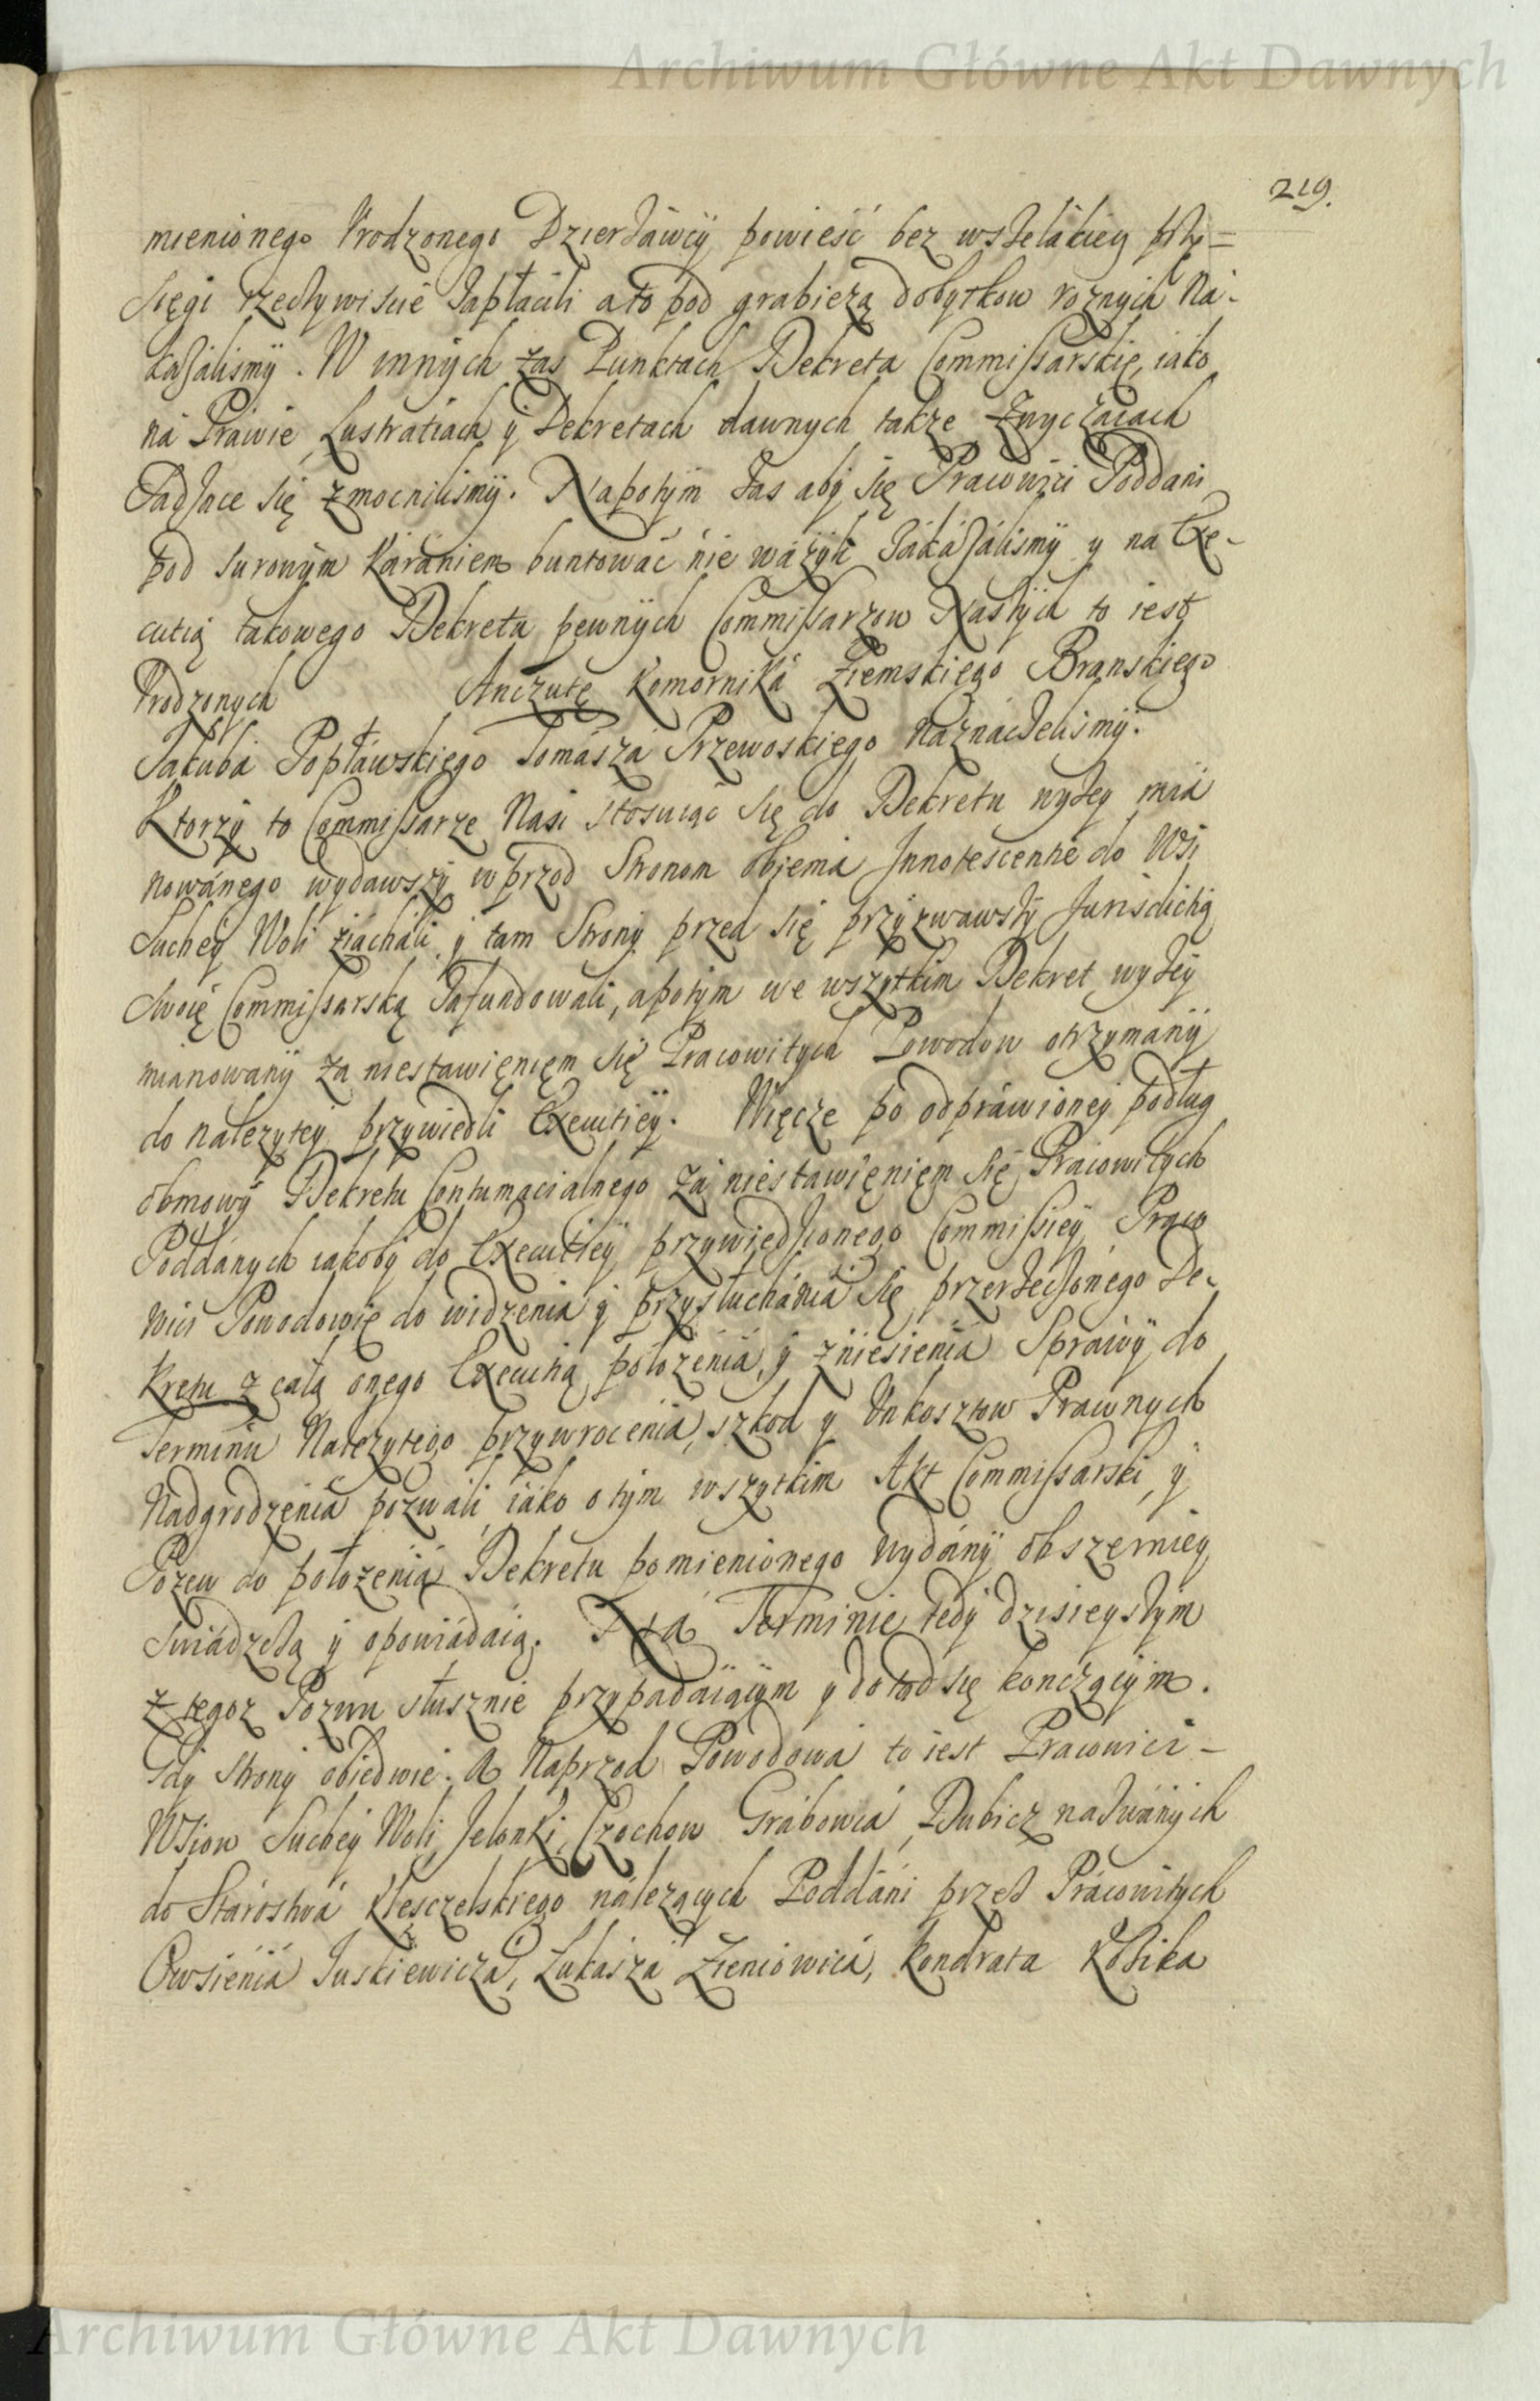 Archiwum Główne Akt Dawnych
219.
mienionego Urodzonego Dzierżawcy powieść bez wszelákiey przy=
sięgi rzeczywiscie zapłacili a to pod grabieżą dobytkow roznych ná-
kazálismÿ. W innÿch zas Punktach Dekreta Commissarskie, iáko
ná Práwie Lustratiach ÿ Dekretach dawnych także Zwyczáiach
sadzące się zmocnilismÿ. Napotÿm zas abÿ się Pracowici Poddani
pod surowÿm káraniem buntowáć nie wáżyli zákázálismÿ y na Exe-
cutią takowego Dekretu pewnÿch Commissarzow Naszÿch to iest
Urodzonych Anczutę Komorniká Ziemskiego Branskiego
Jakubá Popłáwskiego Tomászá Przewoskiego náznáczelismÿ.
Ktorzÿ to Commissarze Nasi stosuiąc się do Dekretu wyżey mia
nowánego wydawszÿ wprzod Stronom obiema Innotescentie do Wsi
Suchey Woli ziácháli ÿ tam Stronÿ przed się przÿzwawszÿ Jurisdictią
swoię Commissarską zafundowali, a potÿm we wszÿtkim Dekret wyżey
mianowanÿ za niestawięnięm się Pracowitych Powodow otrzymánÿ
do należytey przywiedli Executieÿ. Więcże po odpráwioneÿ podług
obmowÿ Dekretu Contumacialnego zá niestawięnięm się Pracowitych
Poddánych iakobÿ do Executieÿ przywiedzionego Commissieÿ Praco
wici Powodowie do widzenia ÿ przysłuchánia się przerzeczonego De-
kretu z całą onego Executią położeniá, ÿ zniesieniá Sprawÿ do
Terminu Należytego przywroceniá, szkod y Unkosztow Prawnych
Nadgrodzęniá pozwali iáko o tÿm wszytkim Akt Commissarski, ÿ
Pozew do położeniá Dekretu pomienionego wydánÿ obszernieÿ
swiádczą ÿ opowiádáią. Ná Terminie tedÿ dzisieÿszÿm
z tegoz Pozwu słusznie przypadáiącÿm y dotąd się konczącÿm.
Gdy stronÿ obiedwie. A Naprzod Powodowá to iest Pracowici-
Wsiow Sucheÿ Woli Jelonki, Czochow Grábowcá, Dubicz názwánÿch
do Stárostwá Klęsczelskiego należących Poddáni przez Prácowitych
Owsieniá Juskiewiczá, Łukászá Zieniowicá, Kondrata Kozika
Archiwum Główne Akt Dawnych